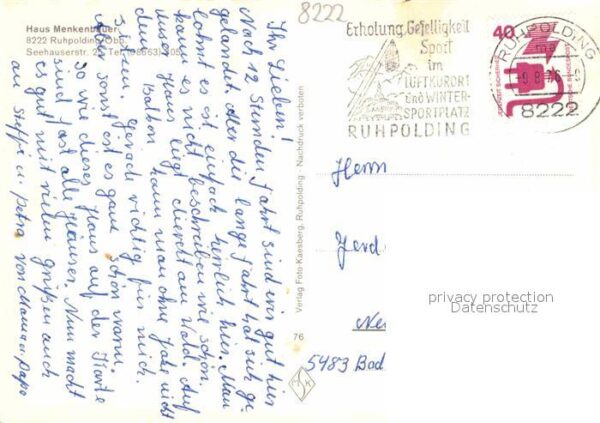 Haus Menkenbauer
8222 Ruhpolding/Obb.
Seehauserstr. 2 Tel. (08663)
8222
Ihr Lieben!
Nach 12 Stunden Fahrt sind wir gut hier
gelandet. Aber die lange Fahrt hat sich ge-
lohnt es ist einfach herrlich hier. Man
kann es nicht beschreiben wie schön,
unser Haus liegt direckt am Wald. Auf
dem Balkon kann man ohne Jake nicht
sitzen. Gerade richtig für mich.
Aber sonst ist es ganz schön warm.
So wie dieses Haus auf der Karte
sind fast alle Häuser. Nun macht
es gut mit vielen Grüßen auch
an Steffi u. Petra von Mama u. Papa
Verlag Foto-Kaesberg, Ruhpolding Nachdruck verboten
76
Erholung, Geselligkeit
Sport
im
LUFTKURORT
UND WINTER-
SPORTPLATZ
RUHPOLDING
40
RUHPOLDING
8222
Herrn
Ferd.
5483 Bad
privacy protection
Datenschutz